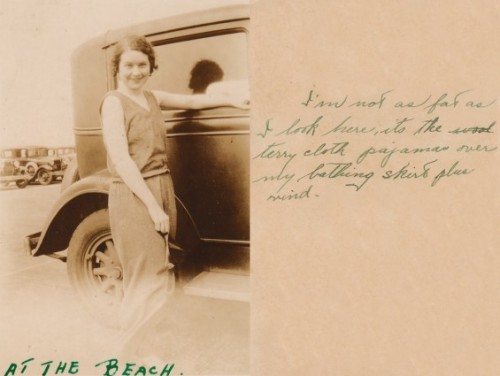 I'm not as fat as
I look here, its the wind
terry cloth pajamas over
my bathing skirt plus
wind.
AT THE BEACH.